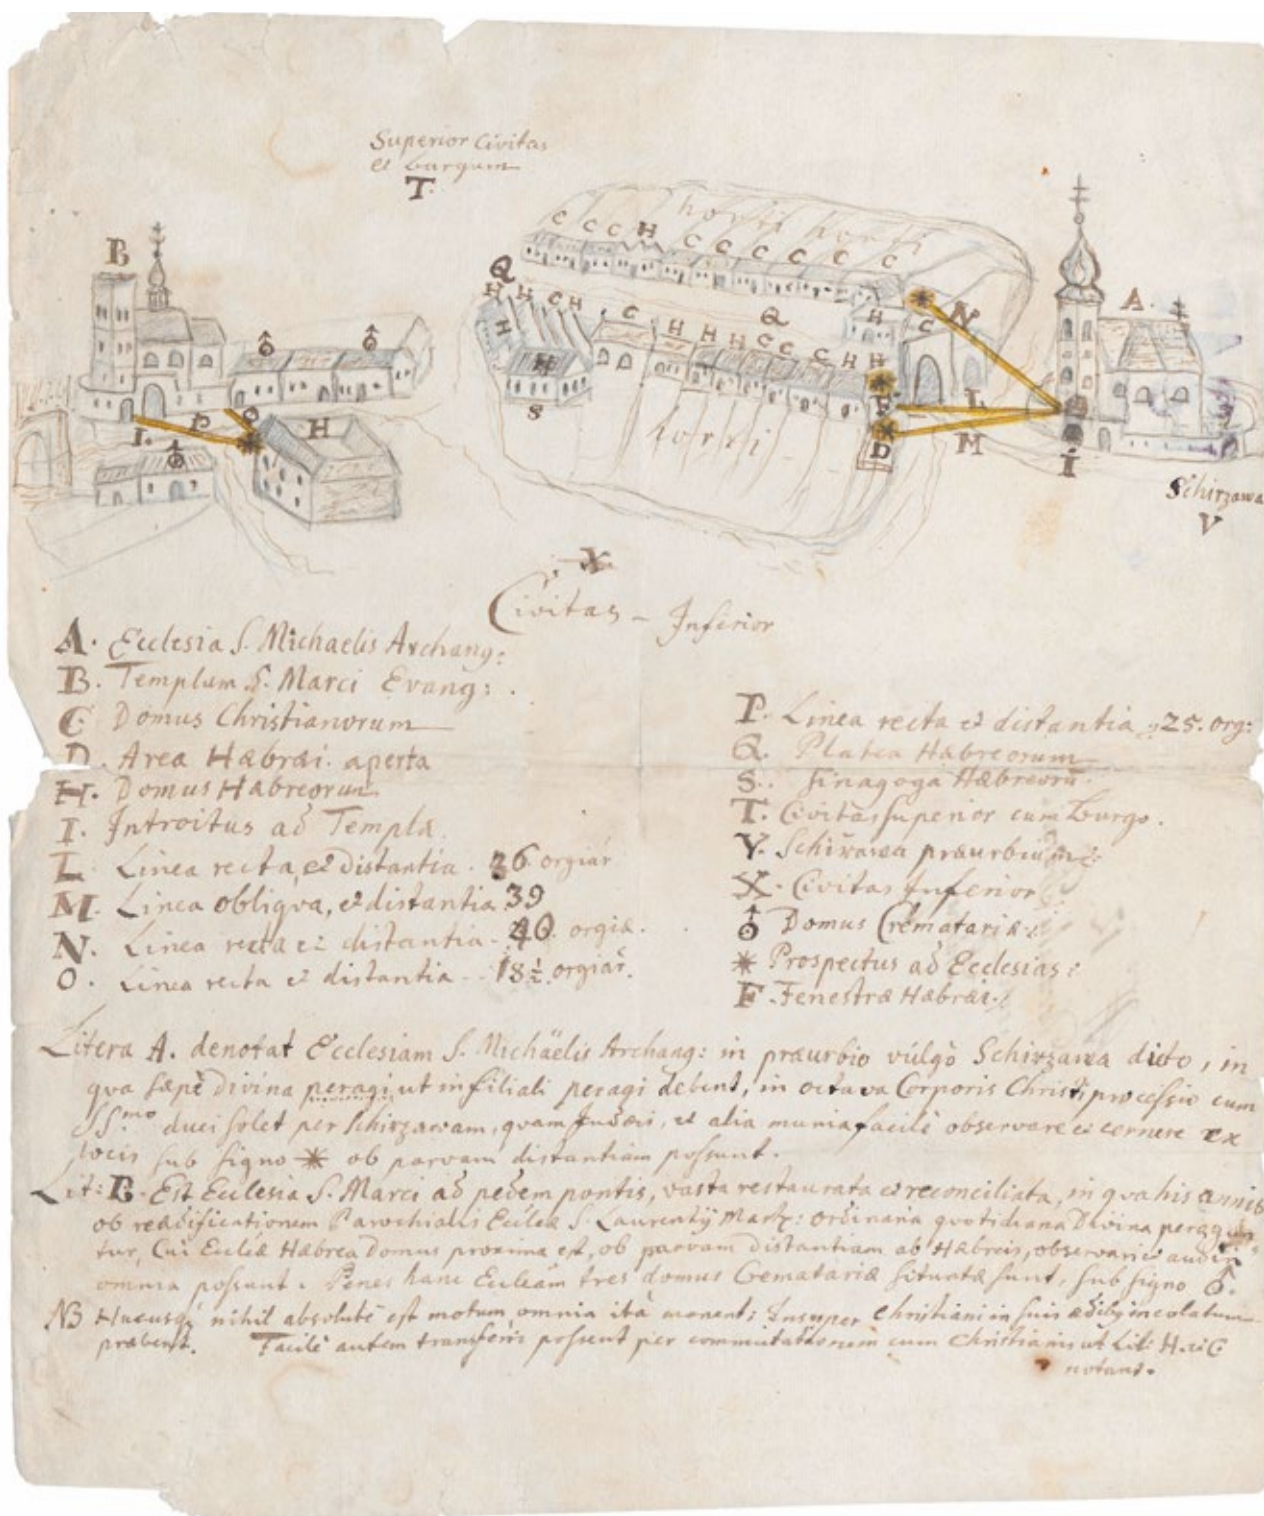 Superior Civitas
et burgum
T.
B
A.
C C C H C C C C C C
horti horti
Q
H H C H
H
H
S
C H H H C C C H H
Q
H
C
N
L
M
F
D
I
horti
♁ ♁
I. P O
♁
H
Schirzawa
V
X
Civitas - Inferior
A. Ecclesia S. Michaelis Archang:
B. Templum S. Marci Evang: .
C Domus Christianorum
D. Area Hæbræi. aperta
H. Domus Habreorum
I. Introitus ad Templa.
L Linea recta, et distantia . 36 orgiar
M. Linea obliqva, et distantia 39
N. Linea recta et distantia - 40 orgiæ.
O. Linea recta et distantia - - 18½ orgiar.
P. Linea recta et distantia : 25. org:
Q. Platea Hæbreorum
S. Sinagoga Hæbreorū
T. Civitas superior cum Burgo.
V. Schirzawa præurbium
X. Civitas Inferior
♁ Domus Crematariæ
✴ Prospectus ad Ecclesias:
F. Fenestræ Hæbræi.
Litera A. denotat Ecclesiam S. Michäelis Archang: in præurbio vulgò Schirzawa dicto, in
qva sæpè Divina peragi, ut in filiali peragi debent, in octava Corporis Christi processio cum
SSmo duci solet per Schirzawam, quam Judæi, et alia munia facilè observare et cernere ex
locis sub signo ✴ ob parvam distantiam possunt.
Lit: B. Est Ecclesia S. Marci ad pedem pontis, vasta restaurata et reconciliata, in qva his annis
ob reædificationem Parochialis Eccleæ S. Laurentij Mart: ordinaria quotidiana Divina peragun
tur, Cui Eccliæ Hæbrea Domus proxima est, ob parvam distantiam ab Hæbreis, observari et audiri
omnia possunt. Penes hanc Ecclēam tres domus Crematariæ situatæ sunt, sub signo ♁.
NB Hucusqɜ nihil absolutè est motum, omnia ita manent; Insuper Christiani in suis ædibɜ incolatum
præbent. Facilè autem transferri possent per commutationem cum Christianis ut Lit: H. et C
notant.